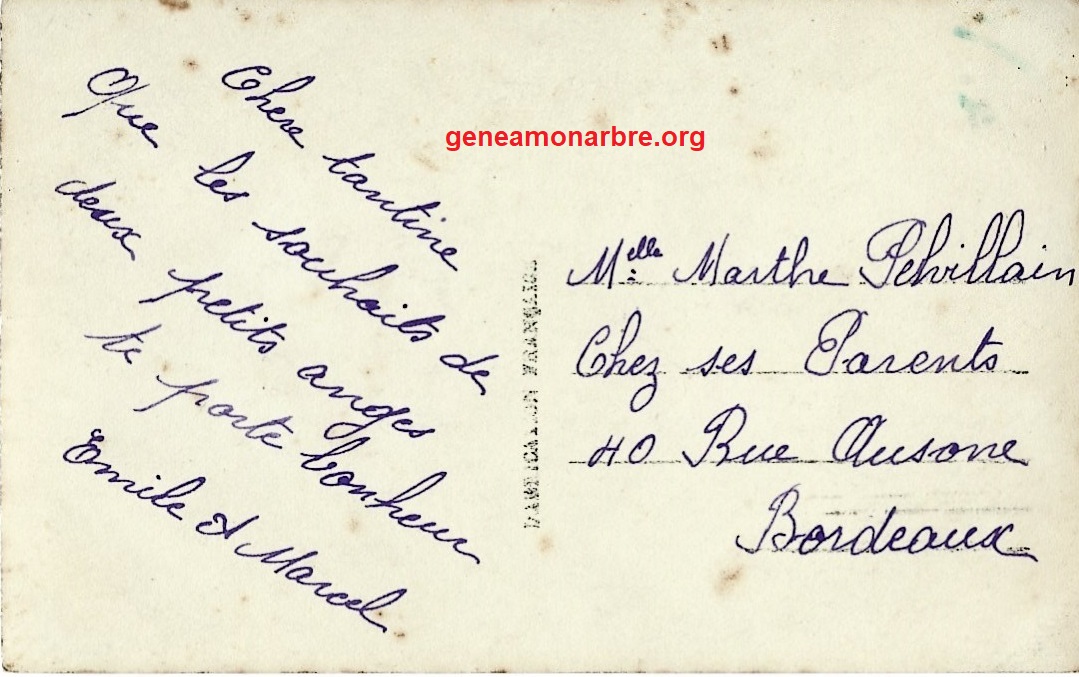 Chere tantine
Que les souhaits de
deux petits anges
te porte bonheur
Emile et Marcel
geneamonarbre.org
FABRICATION FRANÇAISE
Melle Marthe Pelvillain
Chez ses Parents
40 Rue Ausone
Bordeaux